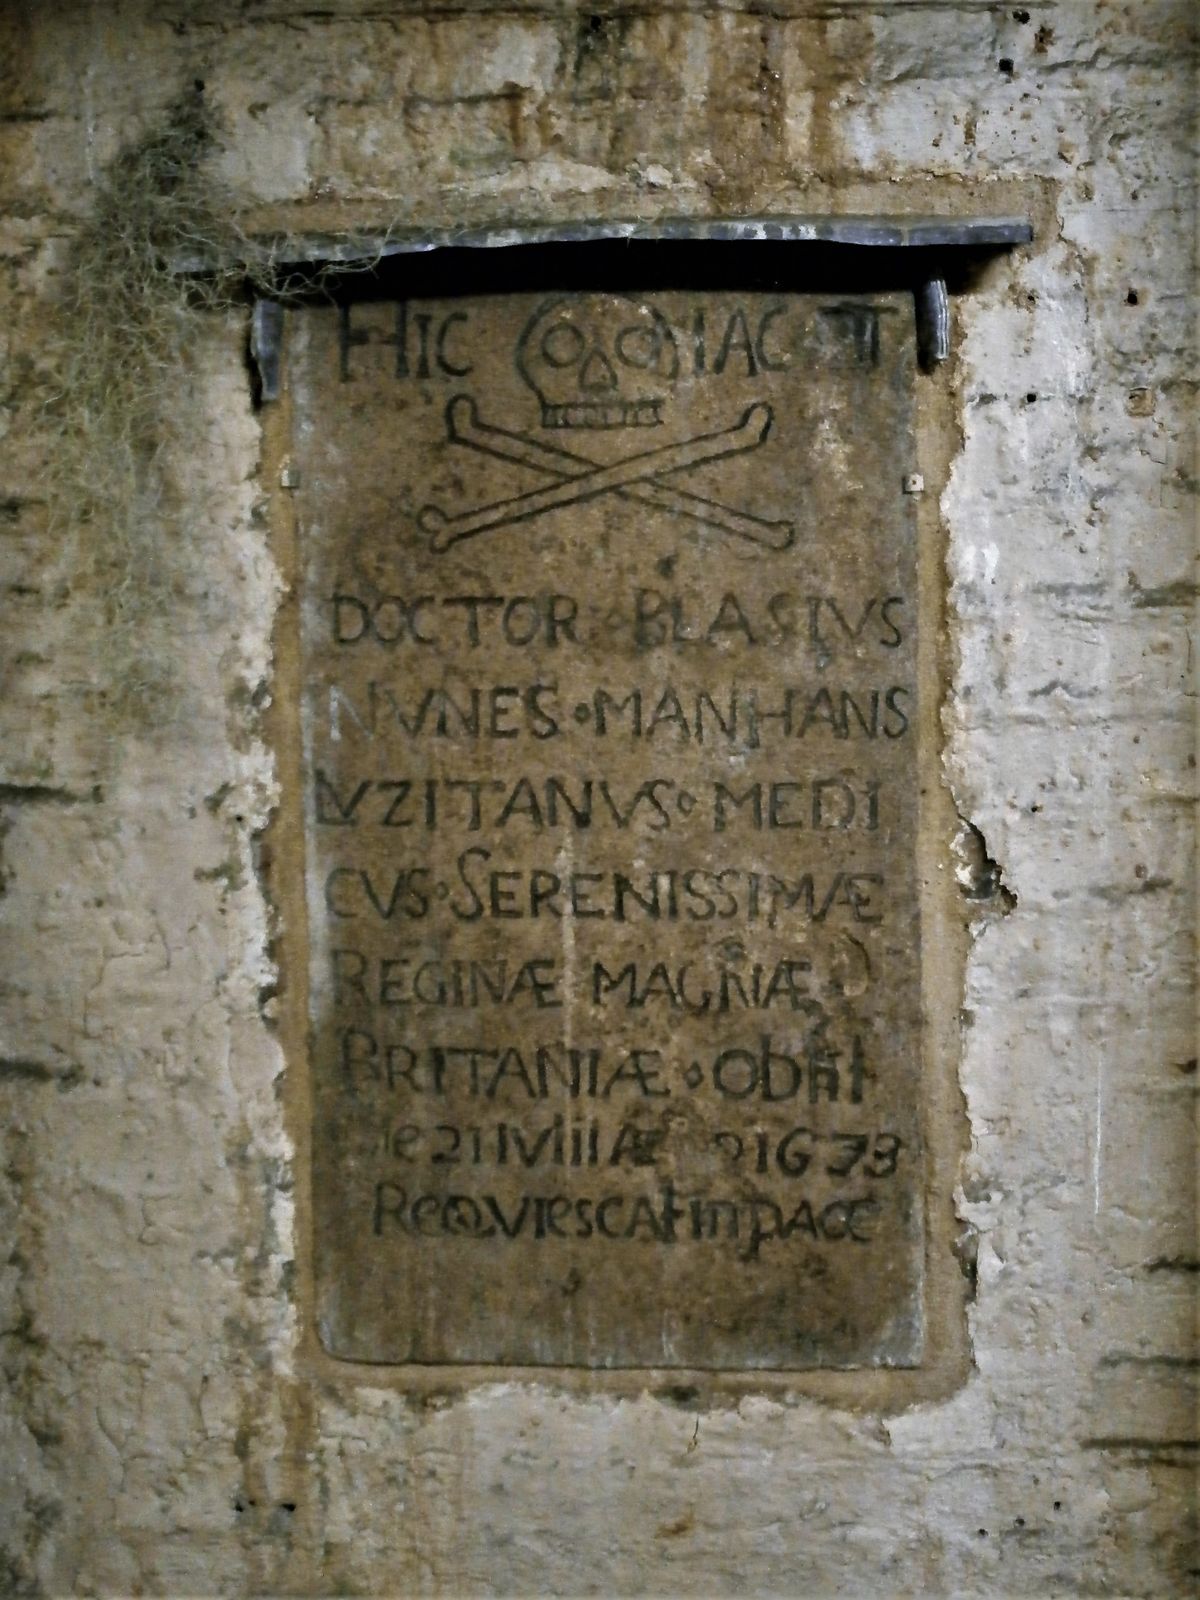 HIC IACET
DOCTOR · BLASIVS
NVNES · MANHANS
LVZITANVS · MEDI
CVS · SERENISSIMÆ
REGINÆ MAGNÆ
BRITANIÆ · Obiit
Die 21 IVliiÆ 1673
ReQVIescAt in pAce